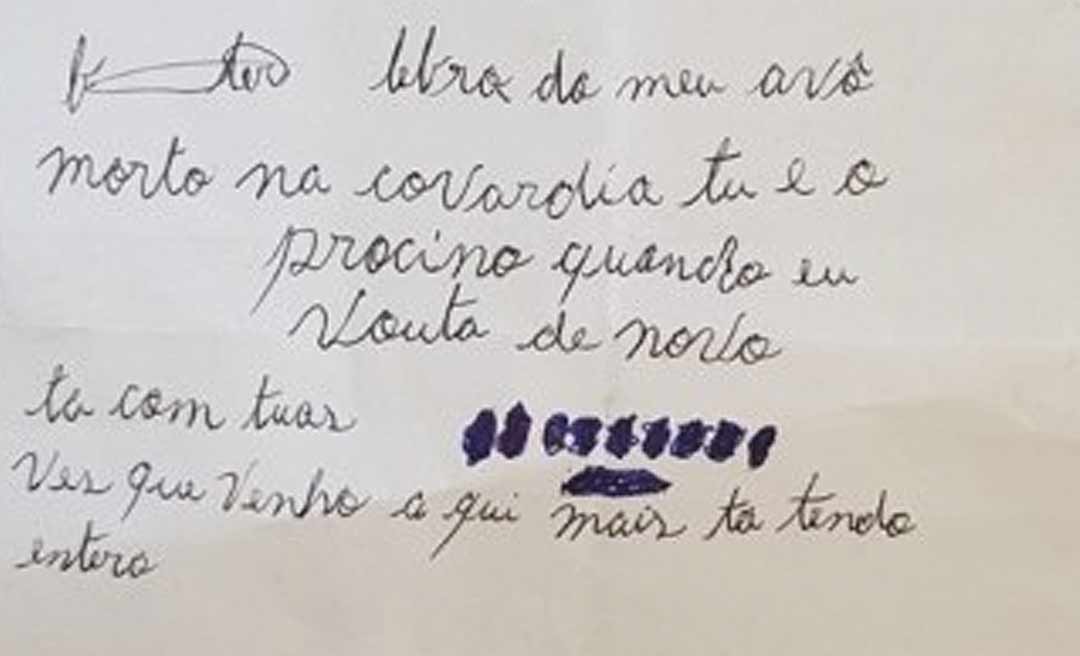 do meu avô
morto na covardia tu e o
procino quando eu
vouta de novo
ta com tuas
Ves que venho a qui mais ta tendo
entero